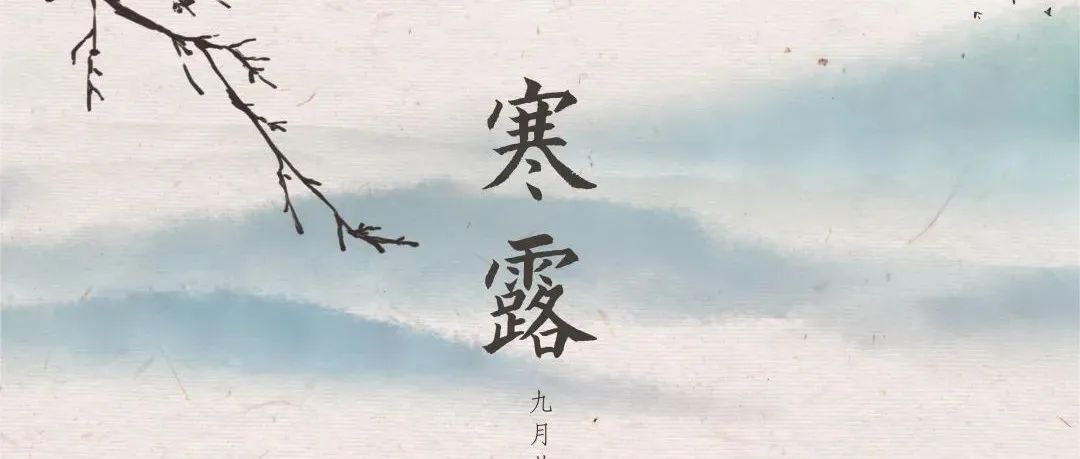 寒露
九月